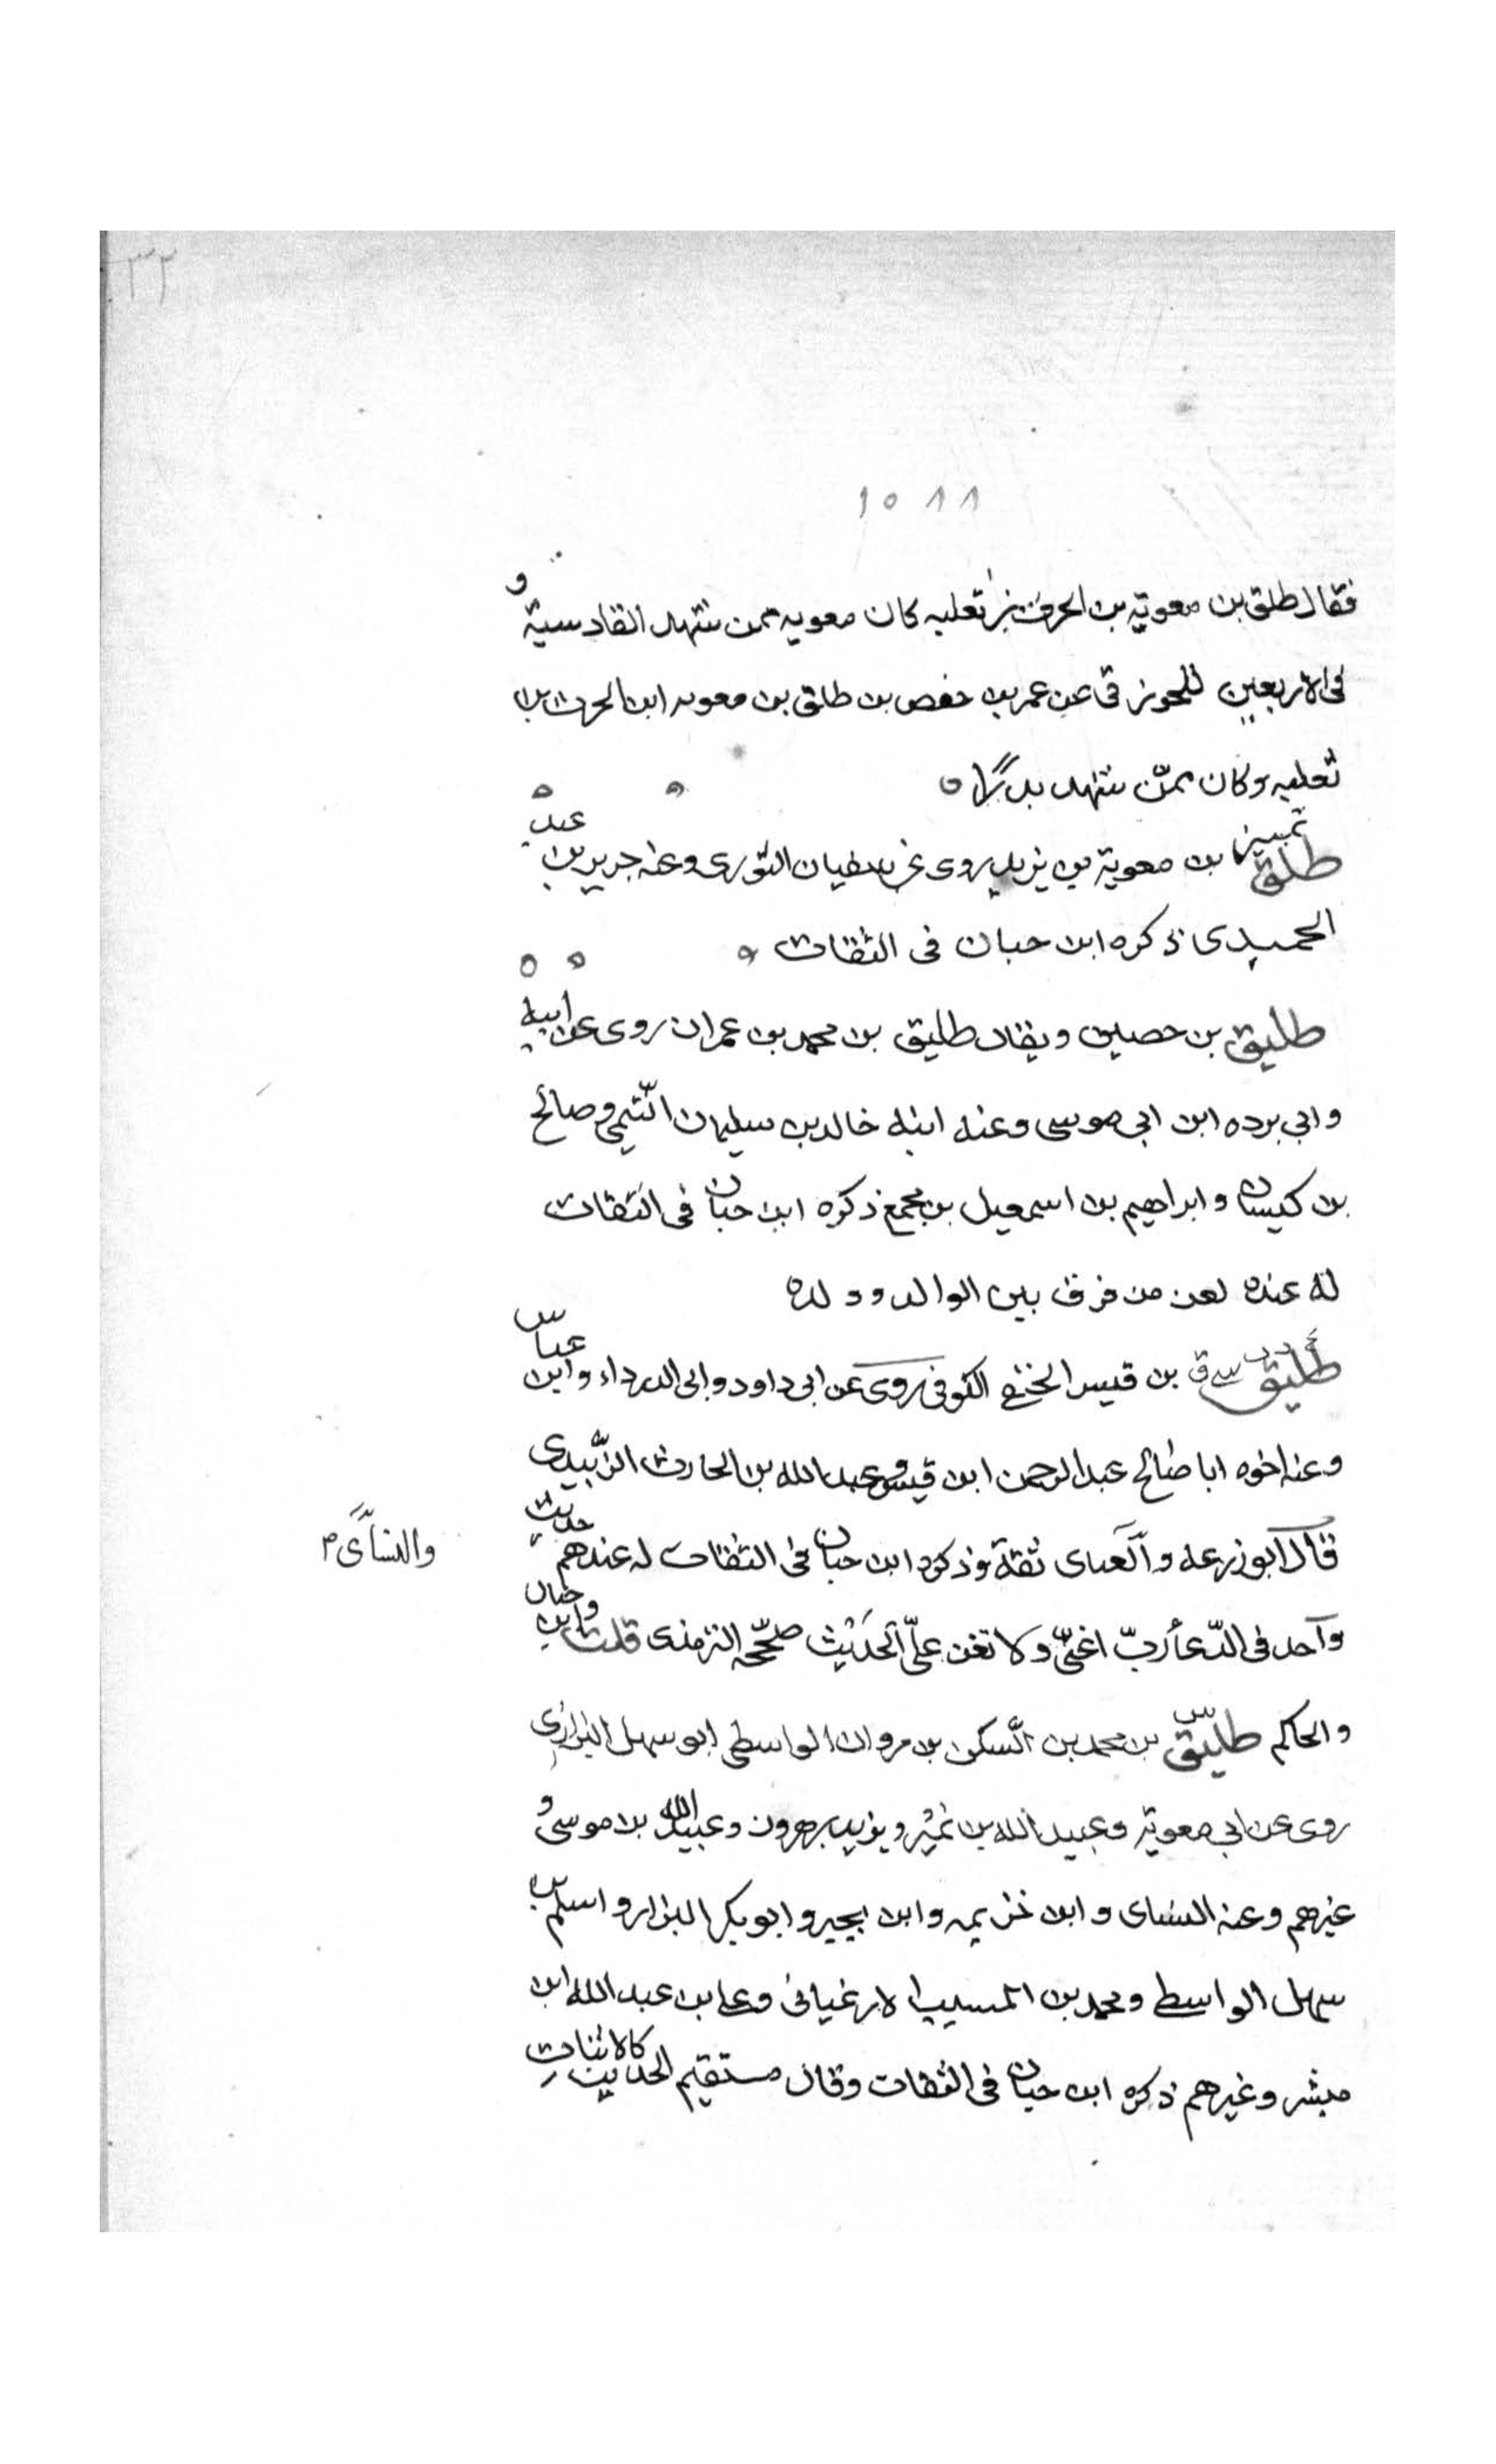 ٣٢
١٥٨٨
فقال طلق بن معوية بن الحرث بن ثعلبه كان معويه ممن شهد القادسية و
فى الاربعين للجوزقى عن عمر بن حفص بن طلق بن معويه ابن الحرث بن
ثعلبه وكان ممّن شهد بدرًا
تمييز
طلق بن معوية بن يزيد روى عن سفيان الثورى وعنه جرير بن عبد
الحميدى ذكره ابن حبان فى الثقات
طليق بن حصين ويقال طليق بن محمد بن عمران روى عن ابيه
وابى برده ابن ابى موسى وعنه ابنه خالد بن سليمان التّيمى وصالح
بن كيسان وابراهيم بن اسمعيل بن مجمع ذكره ابن حبان فى الثقات
له عنده لعن من فرق بين الوالد وولده
طليق بن قيس الحنفى الكوفى روى عن ابى داود وابى الدرداء وابن عباس
وعنه اخوه ابا صالح عبد الرحمن ابن قيس وعبد الله بن الحارث الزّبيدى
قال ابو زرعه والنساىٔ ثقة وذكره ابن حبان فى الثقات له عندهم حديث
والنسآى م
واحد فى الدّعأ ربّ اعنّى ولا تعن علىّ الحديث صحّحه الترمذى قلت وابن حبان
والحاكم طليق بن محمد بن السكن بن مروان الواسطى ابو سهل البزازى
روى عن ابى معوية وعبيد الله بن نمير ويزيد بن هرون وعبيد الله بن موسى و
غيرهم وعنه النساى وابن خزيمه وابن بجير وابو بكر البزار واسلم بن
سهل الواسطى ومحمد بن المسيب الارغيانى وعلى بن عبد الله ابن
مبشر وغيرهم ذكره ابن حبان فى الثقات وقال مستقيم الحديث كالاثبات